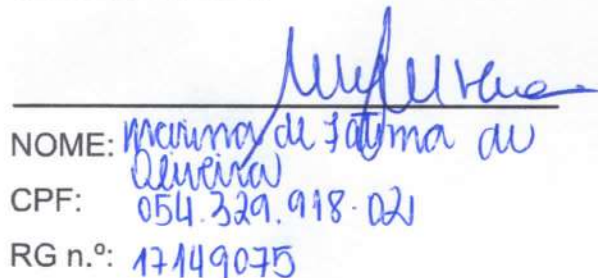 NOME: Marina de Fatima de
Oliveira
CPF: 054.329.918-02
RG n.º: 17149075